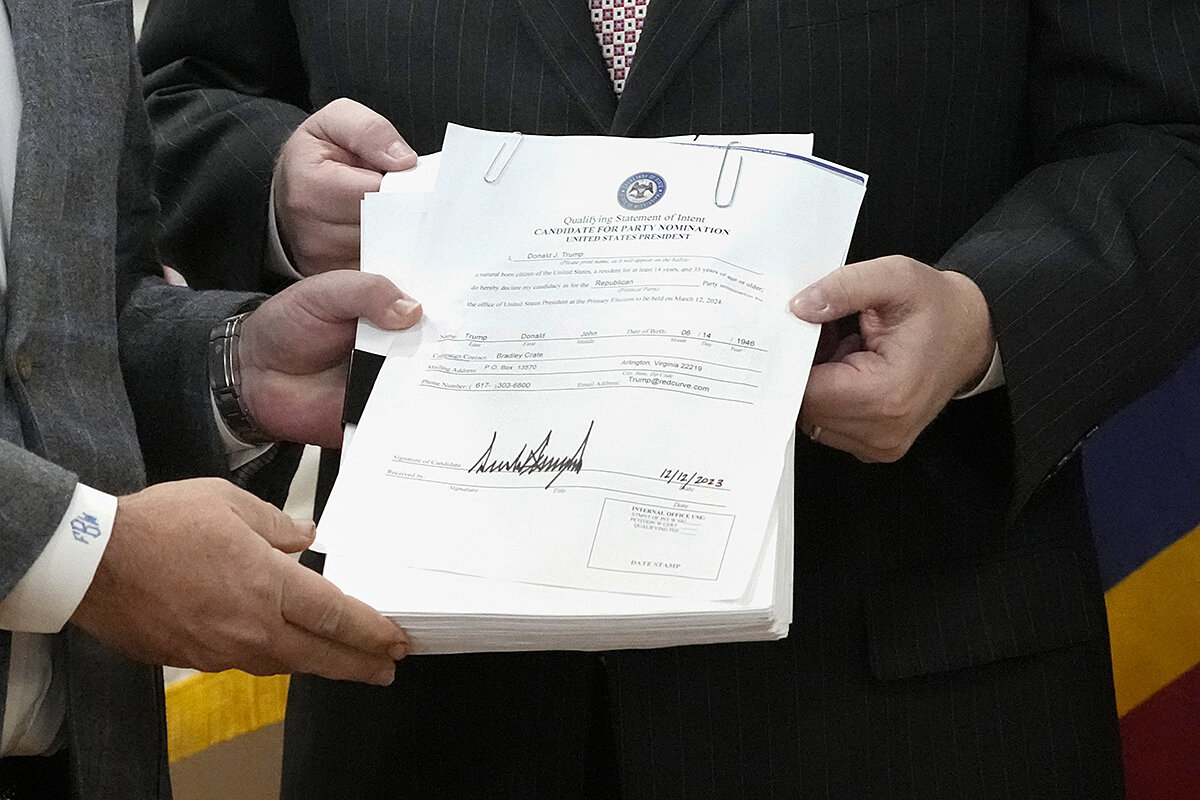 Qualifying Statement of Intent
CANDIDATE FOR PARTY NOMINATION
UNITED STATES PRESIDENT
I, Donald J. Trump
(Please print name, as it will appear on the ballot)
a natural born citizen of the United States, a resident for at least 14 years, and 35 years of age or older,
do hereby declare my candidacy as for the Republican Party
(Political Party)
the office of United States President at the Primary Election to be held on March 12, 2024.
Name: Trump Donald John Date of Birth: 06 / 14 / 1946
Last First Middle Month Day Year
Campaign Contact: Bradley Crate
Mailing Address: P.O. Box 13570 Arlington, Virginia 22219
City, State, Zip Code
Phone Number: ( 617- )303-6800 Email Address: Trump@redcurve.com
Signature of Candidate 12/12/2023
Date
Received by
Signature Title Date
INTERNAL OFFICE USE:
PETITION W CERT
QUALIFYING FEE
DATE STAMP